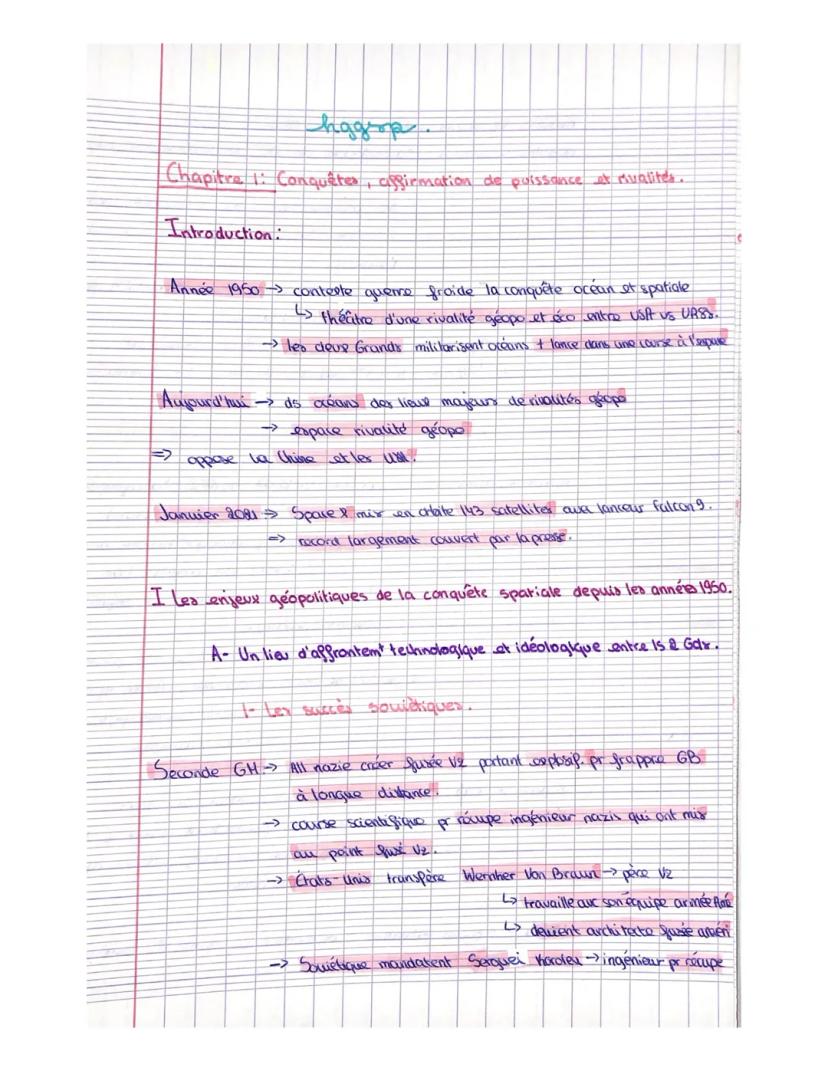 hggsp.
Chapitre 1: Conquêtes, affirmation de puissance et rivalités.
Introduction:
Année 1950 → contexte guerre froide la conquête océan et spatiale
↳ théâtre d'une rivalité géopo et éco entre USA vs URSS.
→ les deux Grands militarisent océans + lance dans une course à l'espace
Aujourd'hui → ds océans des lieux majeurs de rivalités géopo
→ espace rivalité géopo
⇒ oppose la Chine et les USA.
Janvier 2021 ⇒ Space X mis en orbite 143 satellites aux lanceurs Falcon 9.
⇒ record largement couvert par la presse.
I Les enjeux géopolitiques de la conquête spatiale depuis les années 1950.
A- Un lieu d'affrontemt technologique et idéologique entre ls 2 Gdx.
1- Les succès soviétiques.
Seconde GM → All nazie créer fusée V2 portant explosif. pr frappre GB
à longue distance.
→ course scientifique pr récupe ingénieur nazis qui ont mis
au point fusé V2.
→ États-Unis transfère Wernher Von Braun → père V2
↳ travaille avc son équipe armée Amé
↳ devient architecte fusée améri
→ Soviétique mandatent Serguei Korolev → ingénieur pr récupe